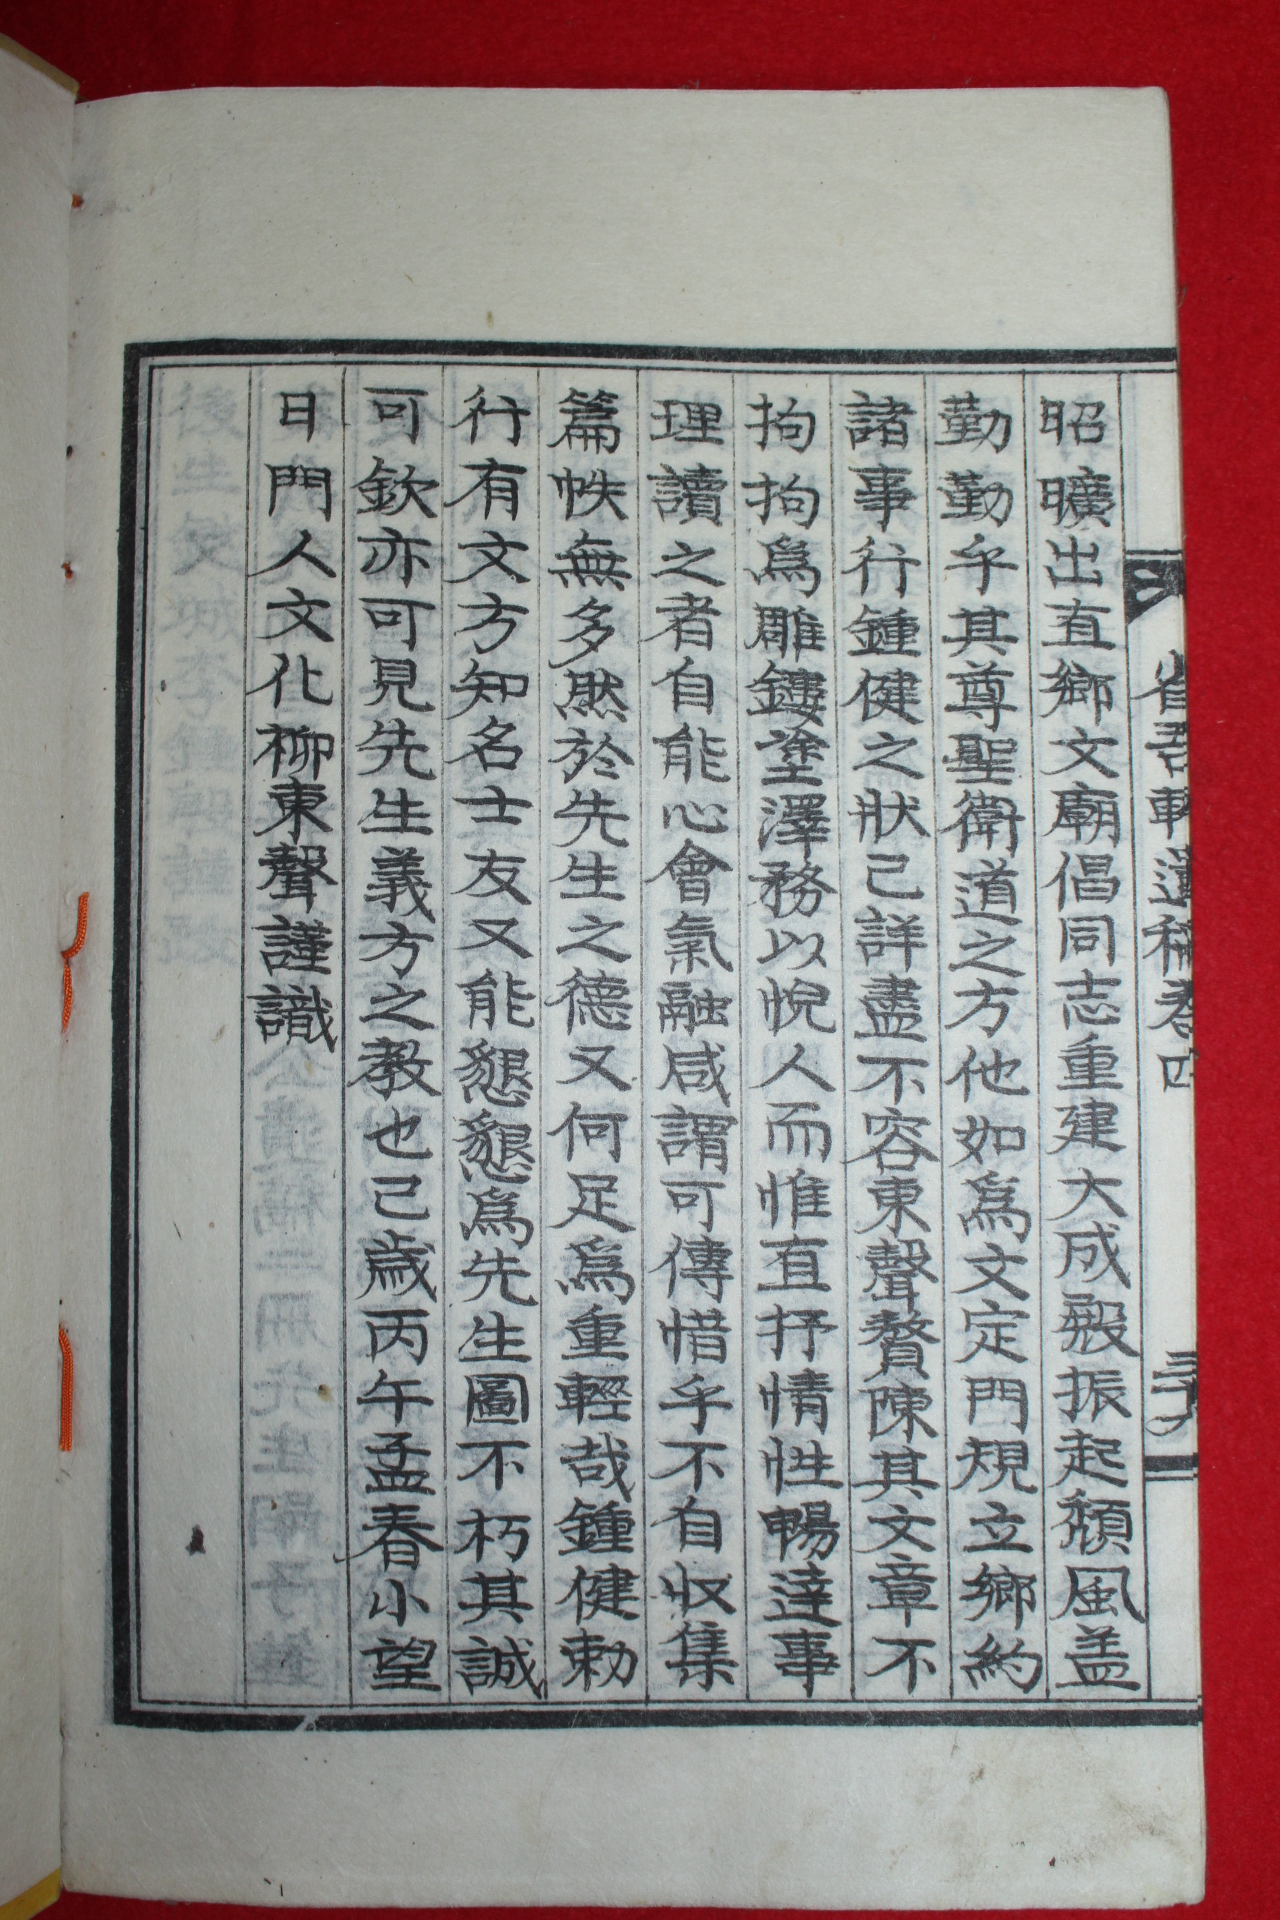 昭曠出直鄉文廟倡同志重建大成殿振起頹風盖
勤勤乎其尊聖衛道之方他如爲文定門規立鄉約
諸事行鍾健之狀己詳盡不容東聲贅陳其文章不
拘拘爲雕鏤塗澤務以悅人而惟直抒情性暢達事
理讀之者自能心會氣融咸謂可傳惜乎不自収集
篇帙無多然於先生之德又何足爲重輕哉鍾健勅
行有文方知名士友又能懇懇爲先生圖不朽其誠
可欽亦可見先生義方之教也己歲丙午孟春小望
日門人文化柳東聲謹識
省吾軒遺稿卷四
三十九